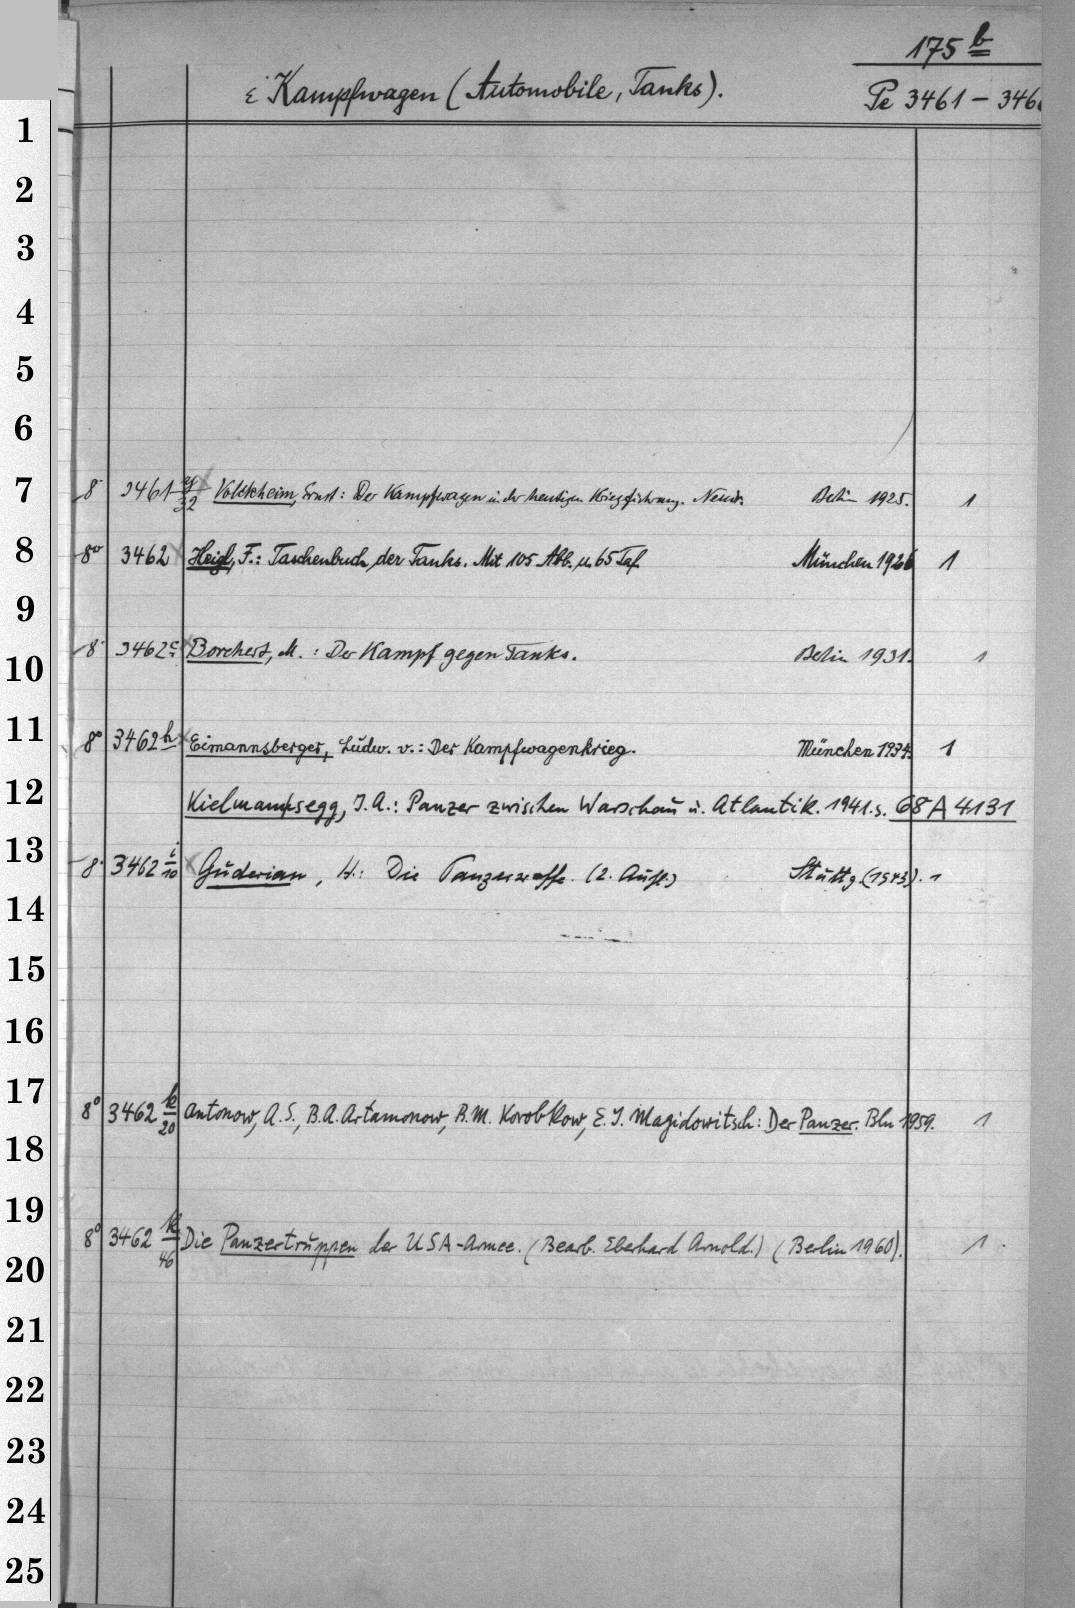 175 b
ε Kampfwagen (Automobile, Tanks). Pe 3461 - 346
1
2
3
4
5
6
7 8° 3461 32 Volckheim, Ernst: Der Kampfwagen in der heutigen Kriegführung. Neudr. Berlin 1925. 1
8 8° 3462 Heigl, F.: Taschenbuch der Tanks. Mit 105 Abb. u. 65 Taf. München 1926 1
9
10 8° 3462 c Borchert, M.: Der Kampf gegen Tanks. Berlin 1931. 1
11 8° 3462 h Eimannsberger, Ludw. v.: Der Kampfwagenkrieg. München 1934. 1
12 Kielmansegg, J. A.: Panzer zwischen Warschau u. Atlantik. 1941. s. 68 A 4131
13 8° 3462 i/10 Guderian, H.: Die Panzerwaffe. (2. Aufl.) Stuttg. (1943). 1
14
15
16
17 8° 3462 k/20 Antonow, A. S., B. A. Artamonow, B. M. Korobkow, E. I. Magidowitsch: Der Panzer. Bln 1959. 1
18
19
8° 3462 k/46 Die Panzertruppen der USA-Armee. (Bearb. Eberhard Arnold.) (Berlin 1960). 1
20
21
22
23
24
25